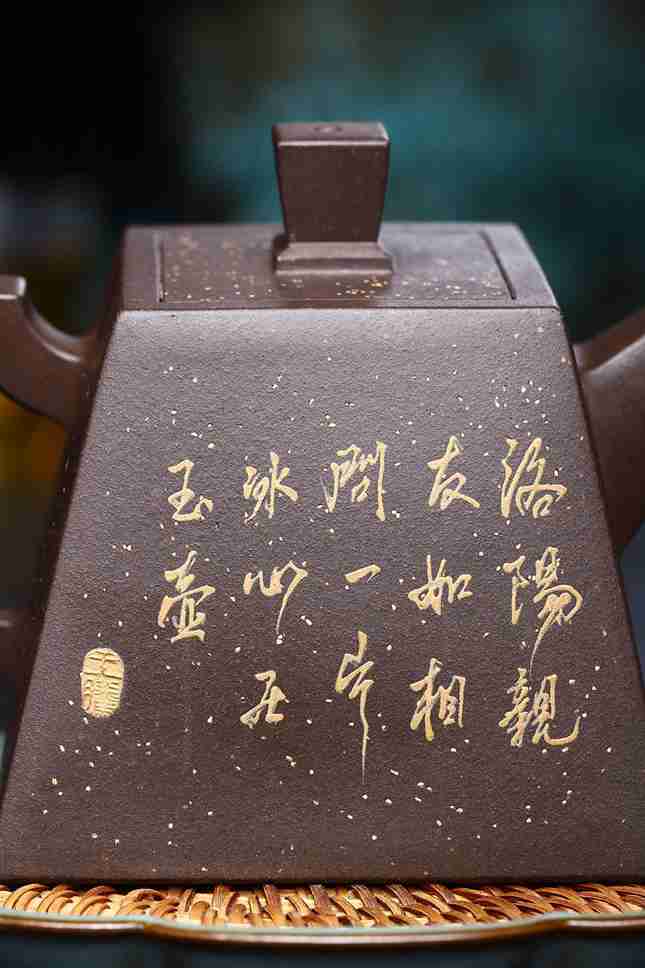 洛陽親
友如相
問一片
冰心在
玉壺